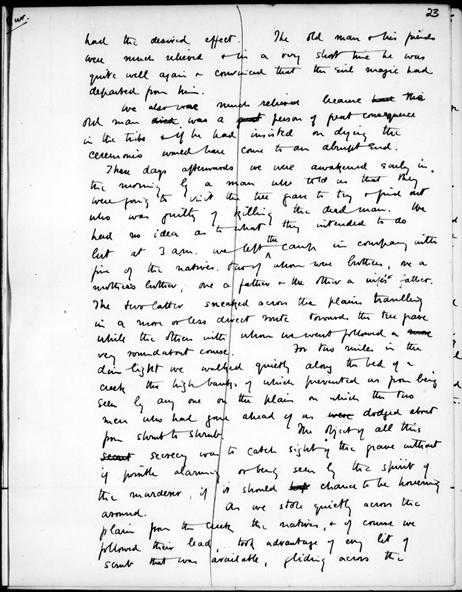 23
had the desired effect. The old man & his friends
were much relieved & in a very short time he was
quite well again & convinced that the evil magic had
departed from him.
We also were much relieved because had this
old man died was a great person of great consequence
in the tribe & if he had insisted on dying the
ceremonies would have come to an abrupt end.
Three days afterwards we were awakened early in
the morning by a man who told us that they
were going to visit the tree grave to try & find out
who was guilty of killing the dead man. We
had no idea as to what they intended to do
but at 3 am. we left the camp in company with
five of the natives. Two of whom were brothers, one a
mothers brother, one a father & the other a wife's father.
The two latter sneaked across the plain travelling
in a more or less direct route toward the tree grave
while the others with whom we went followed a
very roundabout course. For two miles in the
dim light we walked quietly along the bed of a
creek the high banks of which prevented us from being
seen by any one on the plain on which the two
men who had gone ahead of us were dodged about
from shrub to shrub. The object of all this
secret secrecy was to catch sight of the grave without
if possible alarming or being seen by the spirit of
the murderer, if it should chance to be hovering
around. As we stole quietly across the
plain from the creek the natives, & of course we
followed their lead, took advantage of every bit of
scrub that was available, gliding across the